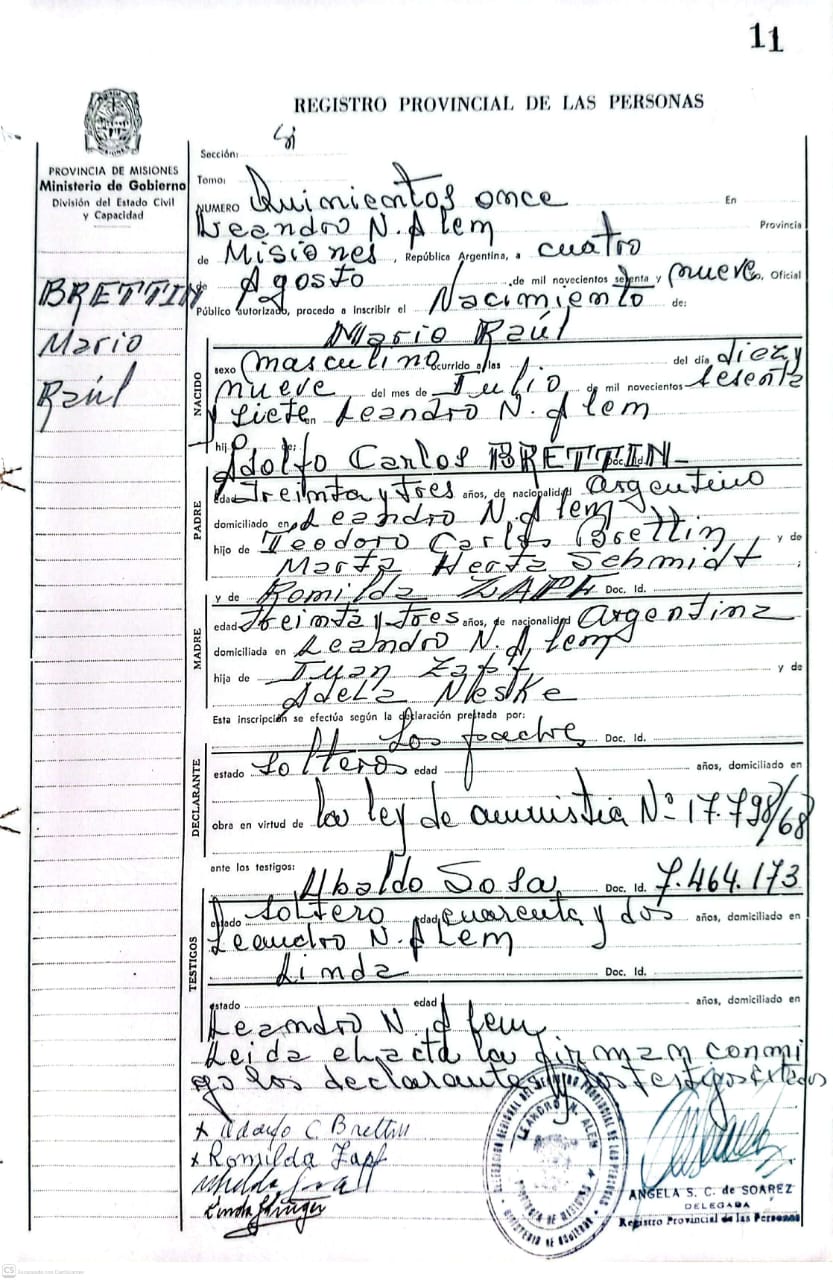 11
REGISTRO PROVINCIAL DE LAS PERSONAS
PROVINCIA DE MISIONES
Ministerio de Gobierno
División del Estado Civil
y Capacidad
BRETTIN
Mario
Raúl
Sección:
Tomo:
NUMERO Quinientos once En
Leandro N. Alem Provincia
de Misiones, República Argentina, a cuatro
de Agosto de mil novecientos setenta y nueve, Oficial
Público autorizado, procedo a inscribir el Nacimiento de:
NACIDO
Mario Raúl
sexo masculino ocurrido a las del día diez y
nueve del mes de Julio de mil novecientos sesenta
y siete en Leandro N. Alem
hijo de:
PADRE
Adolfo Carlos BRETTIN Doc. Id.
edad Treinta y tres años, de nacionalidad Argentino
domiciliado en Leandro N. Alem
hijo de Teodoro Carlos Brettin y de
Marta Herta Schmidt ;
MADRE
y de Romilda ZAPF Doc. Id.
edad Treinta y tres años, de nacionalidad Argentina
domiciliada en Leandro N. Alem
hija de Juan Zapf y de
Adela Neske
Esta inscripción se efectúa según la declaración prestada por:
DECLARANTE
Los padres Doc. Id.
estado solteros edad años, domiciliado en
obra en virtud de la ley de amnistia Nº 17.798/68
ante los testigos:
TESTIGOS
Ubaldo Sosa Doc. Id. 7.464.173
estado soltero edad cuarenta y dos años, domiciliado en
Leandro N. Alem
Linda Doc. Id.
estado edad años, domiciliado en
Leandro N. Alem
Leida el acta la firman conmi
go los declarantes y los testigos citados
x Adolfo C Brettin
x Romilda Zapf
Linda
DELEGACION REGIONAL DEL REGISTRO PROVINCIAL DE LAS PERSONAS
LEANDRO N. ALEM
PROVINCIA DE MISIONES
MINISTERIO DE GOBIERNO
ANGELA S. C. de SOAREZ
DELEGADA
Registro Provincial de las Personas
CS Escaneado con CamScanner